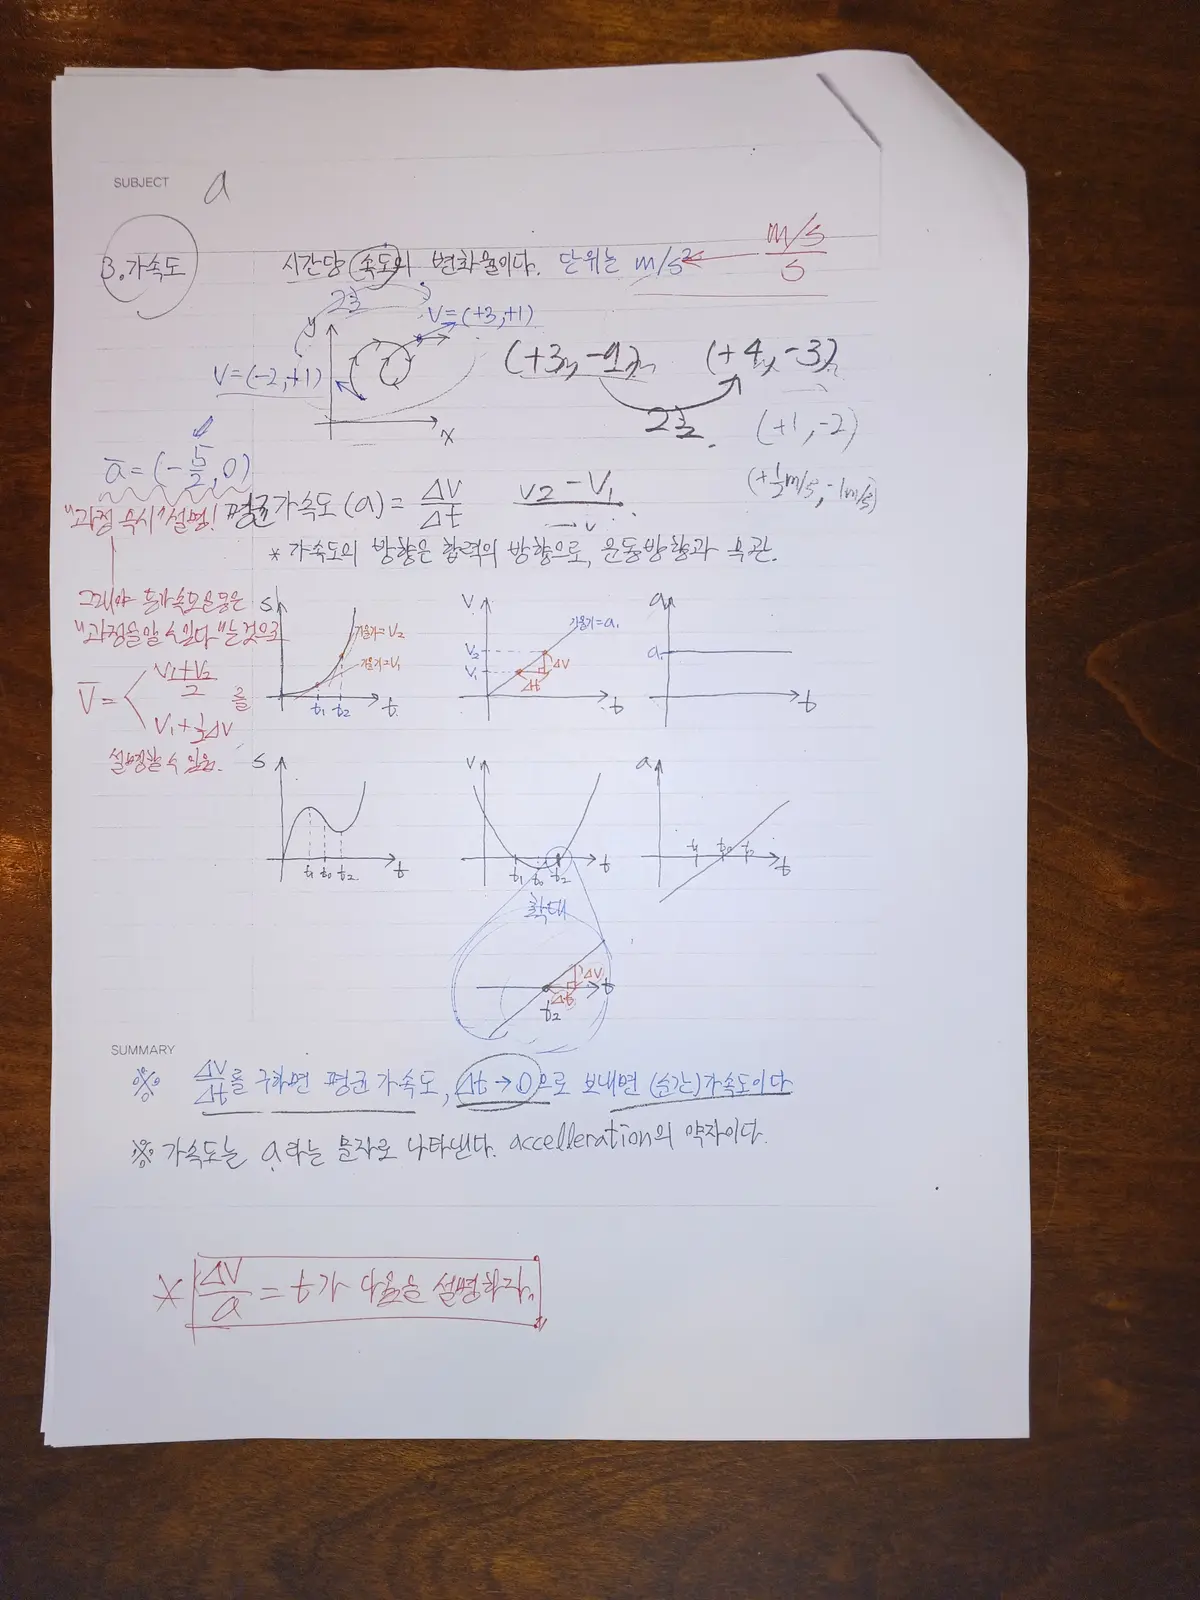 SUBJECT a
3. 가속도
시간당 속도의 변화율이다. 단위는 m/s² m/s / s
2초
V=(+3,+1)
y
V=(-2,+1)
x
(+3, -1) (+4, -3)
2초
(+1, -2)
(+1/2 m/s, -1m/s)
a̅=(-5/2, 0)
평균가속도(a) = ΔV/Δt V2-V1
* 가속도의 방향은 합력의 방향으로, 운동방향과 무관.
"과정 즉시" 설명!
그래야 등가속도운동은
"과정을 알 수 있다"는 것으로
V̅ = < V1+V2/2 를
V1+1/2ΔV
설명할 수 있음.
S 기울기=V2 기울기=V1 t1 t2 t
V 기울기=a1 V2 V1 ΔV Δt t
a a1 t
S t1 t0 t2 t
V t1 t0 t2 t
a t1 t0 t2 t
확대
ΔV Δt t2 t
SUMMARY
※ ΔV/Δt를 구하면 평균 가속도, Δt→0으로 보내면 (순간)가속도이다
※ 가속도는 a라는 문자로 나타낸다. accelleration의 약자이다.
* ΔV/a = t가 다음을 설명하라.